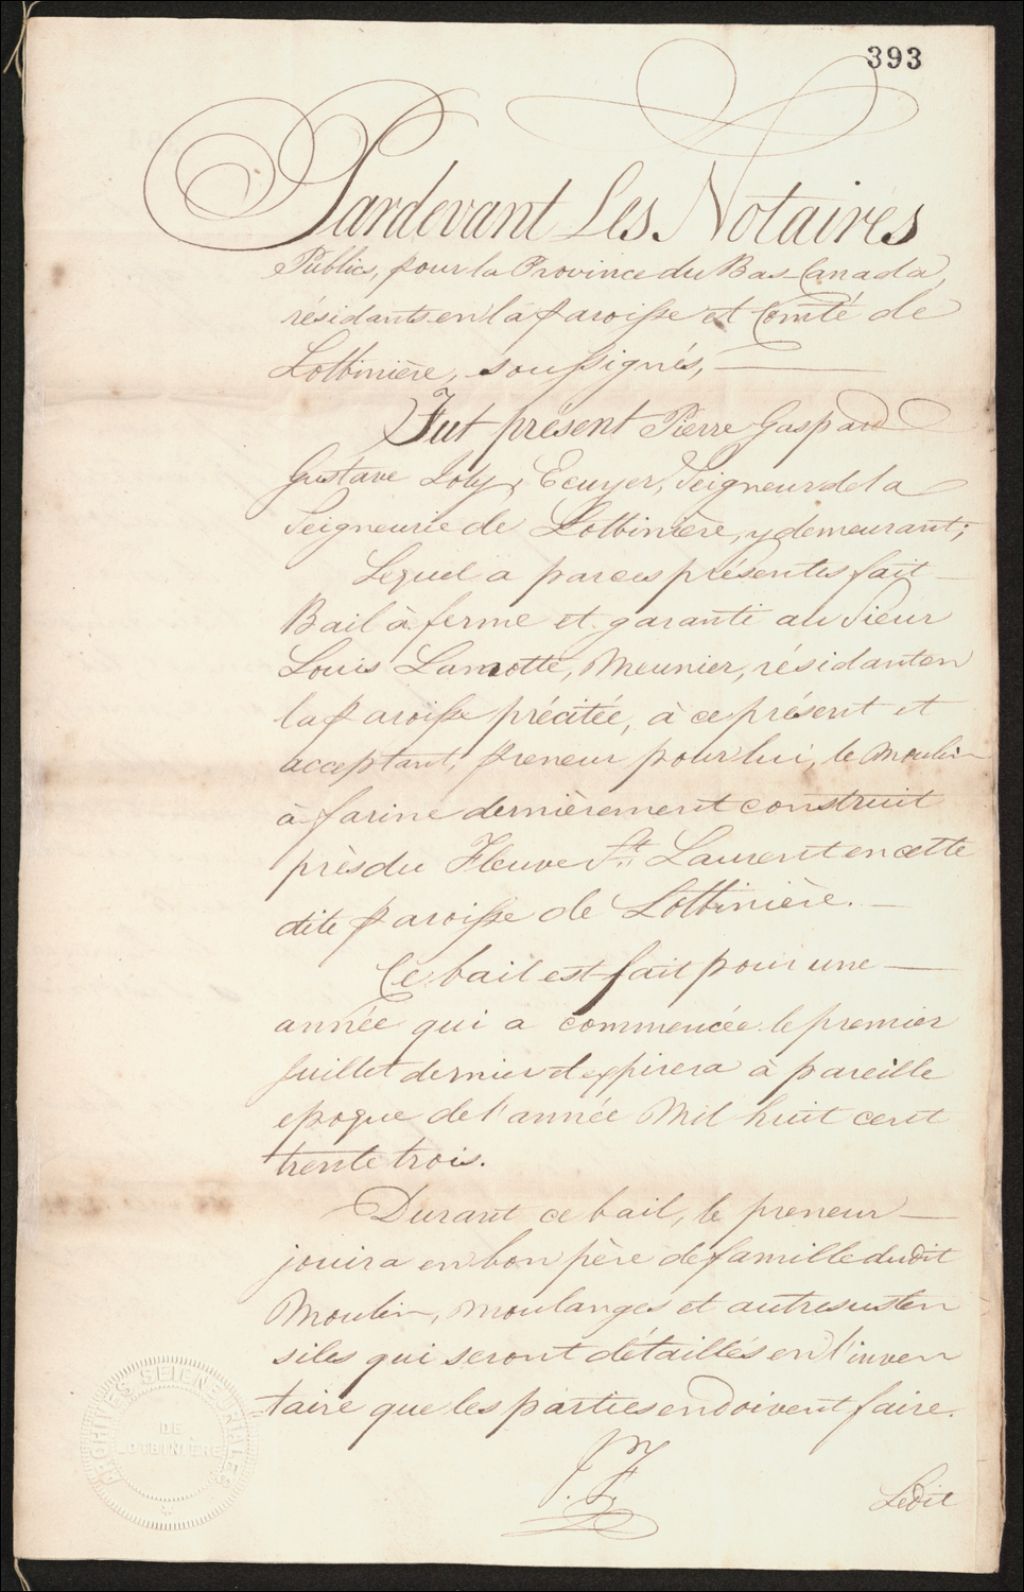 393
Pardevant Les Notaires
Publics, pour la Province du Bas-Canada,
résidants en la Paroisse et Comté de
Lotbinière, soussignés,
Fut présent Pierre Gaspard
Gustave Joly, Ecuyer, Seigneur de la
Seigneurie de Lotbinière, y demeurant;
Lequel a par ces présentes fait
Bail à ferme et garanti au Sieur
Louis Lamotte, Meunier, résidant en
la Paroisse précitée, à ce présent et
acceptant, preneur pour lui, le Moulin
à farine dernièrement construit
près du Fleuve St. Laurent en cette
dite Paroisse de Lotbinière.
Ce bail est fait pour une
année qui a commencée le premier
Juillet dernier et expirera à pareille
epoque de l'année Mil huit cent
trente trois.
Durant ce bail, le preneur
jouira en bon père de famille dudit
Moulin, moulanges et autres usten
siles qui seront détaillés en l'inven
taire que les parties en doivent faire.
Ledit
ARCHIVES SEIGNEURIALES
DE
LOTBINIÈRE